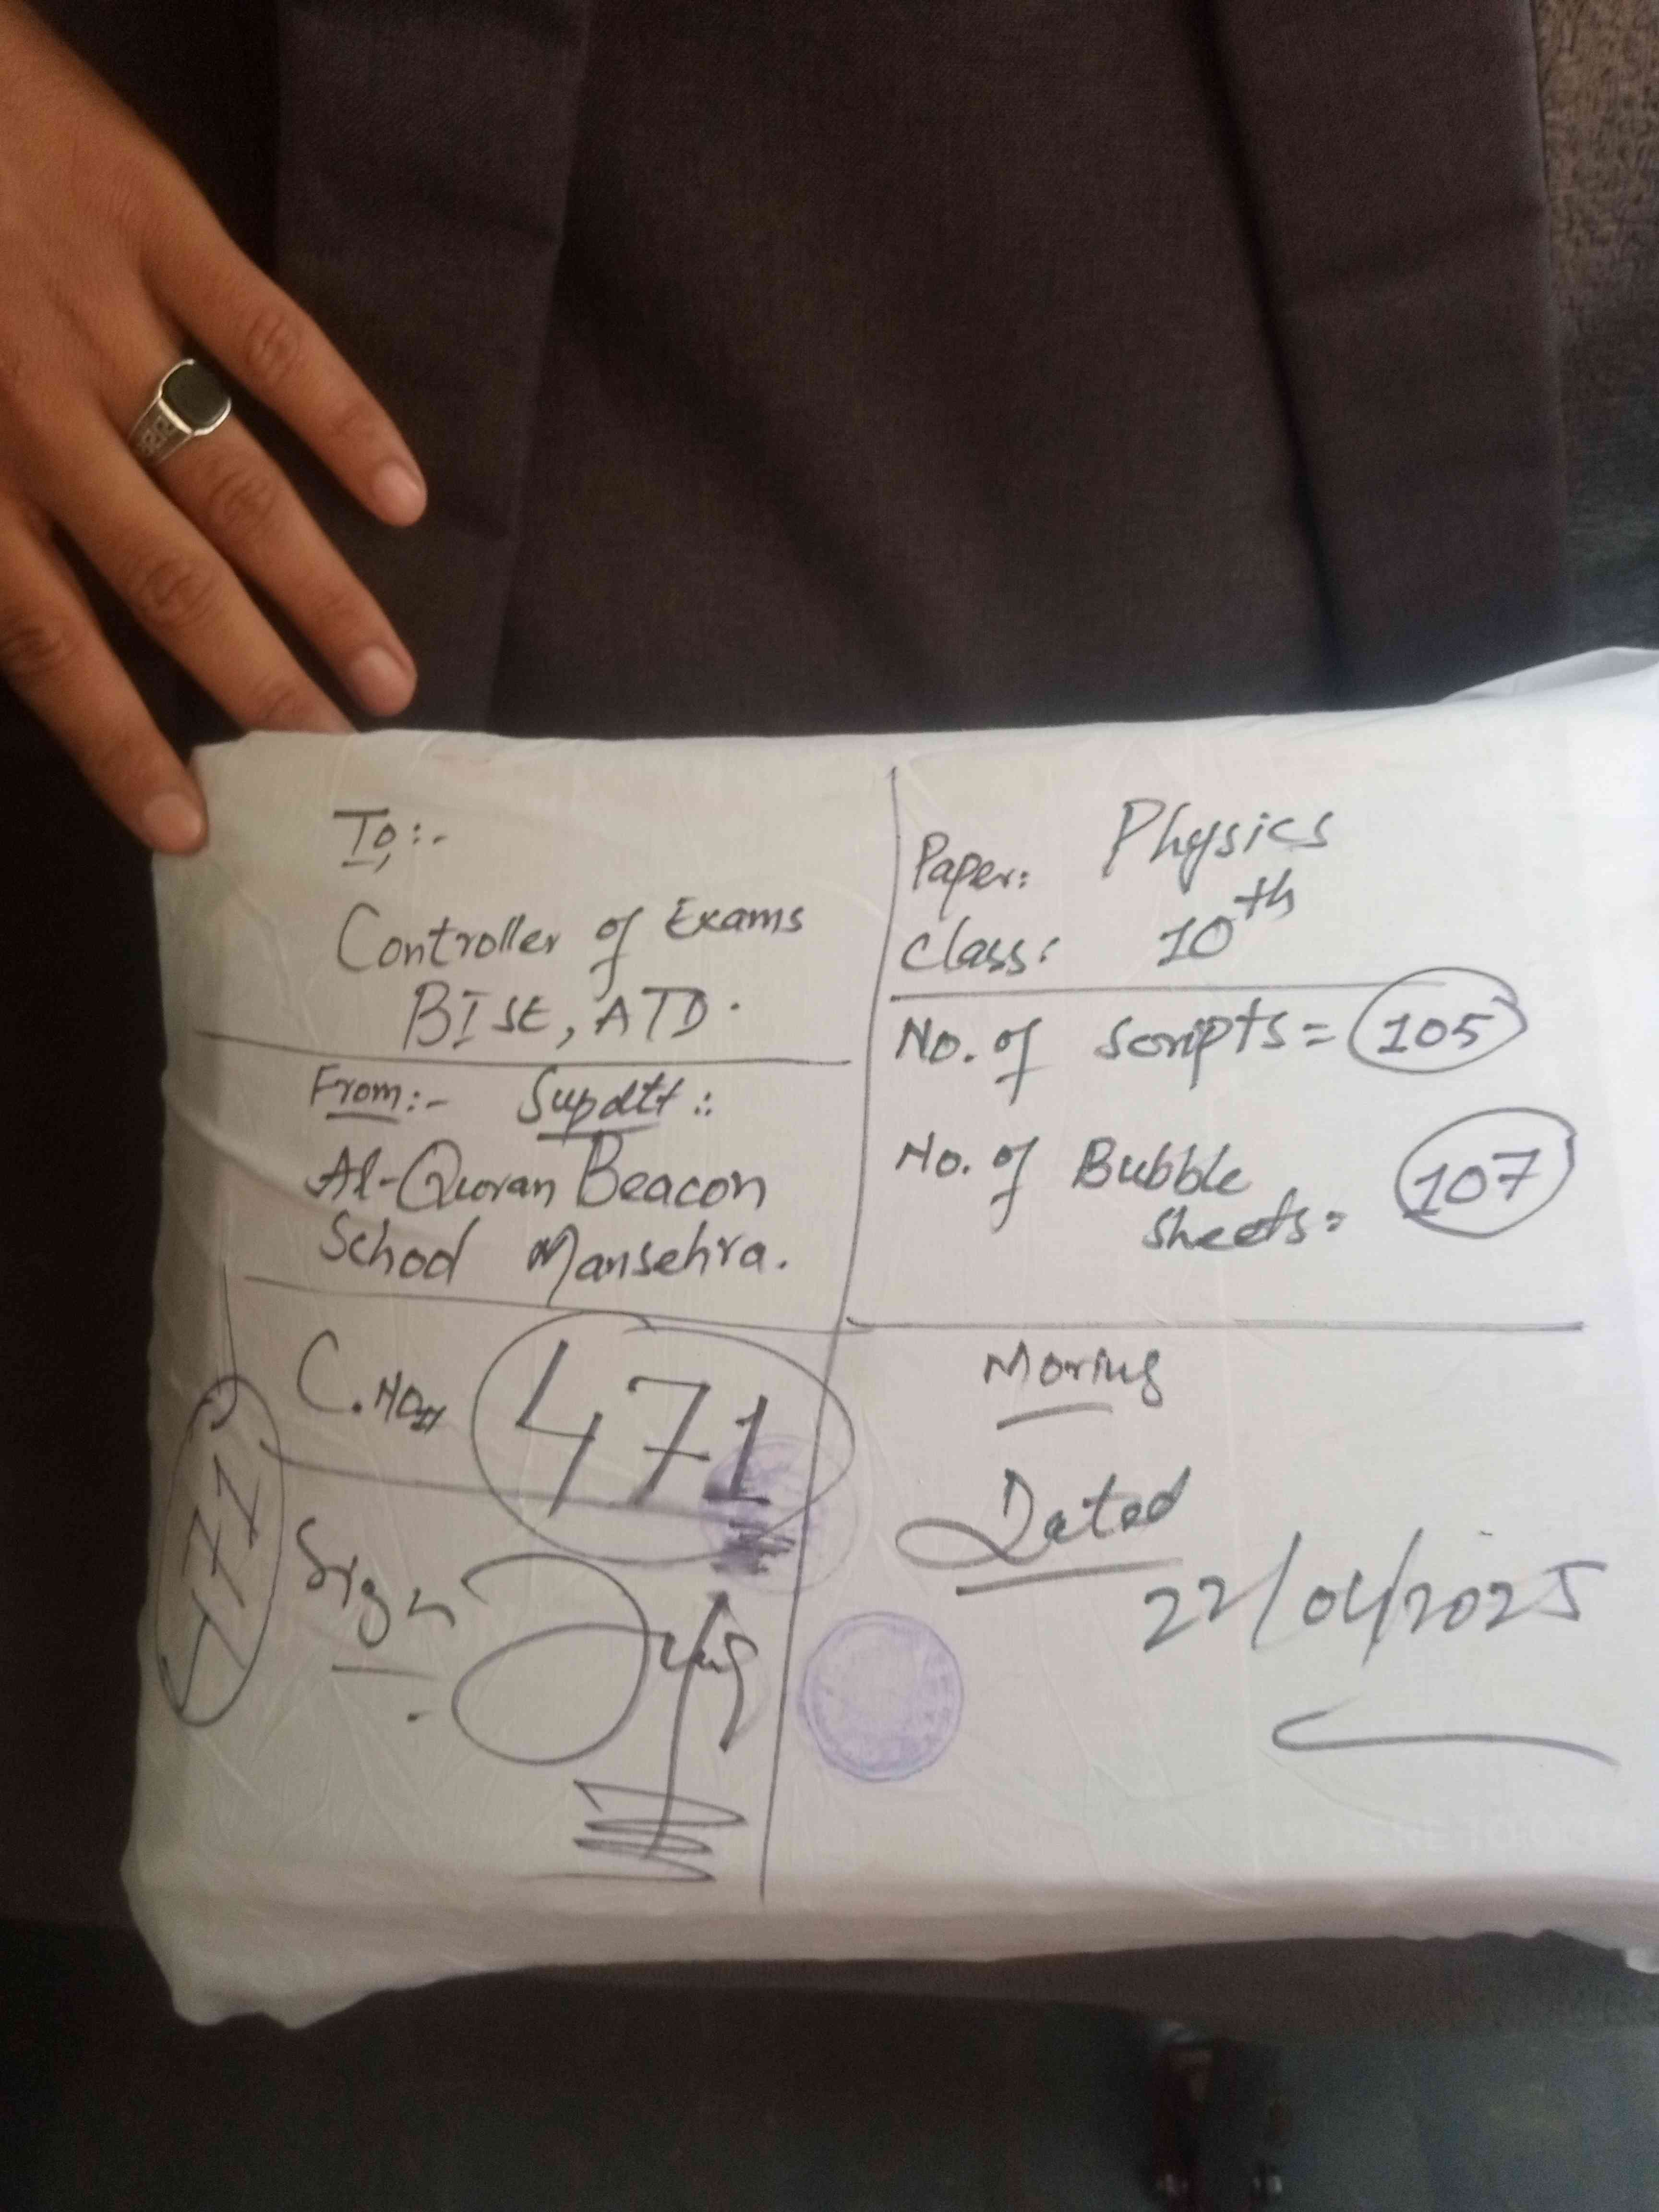 To:-
Controller of Exams
BISE, ATD.
From:- Supdtt::
Al-Quran Beacon
School Mansehra.
C.No# 471
471
Sign
Paper: Physics
Class: 10th
No. of scripts = 105
No. of Bubble
Sheets = 107
Moring
Dated
22/04/2025